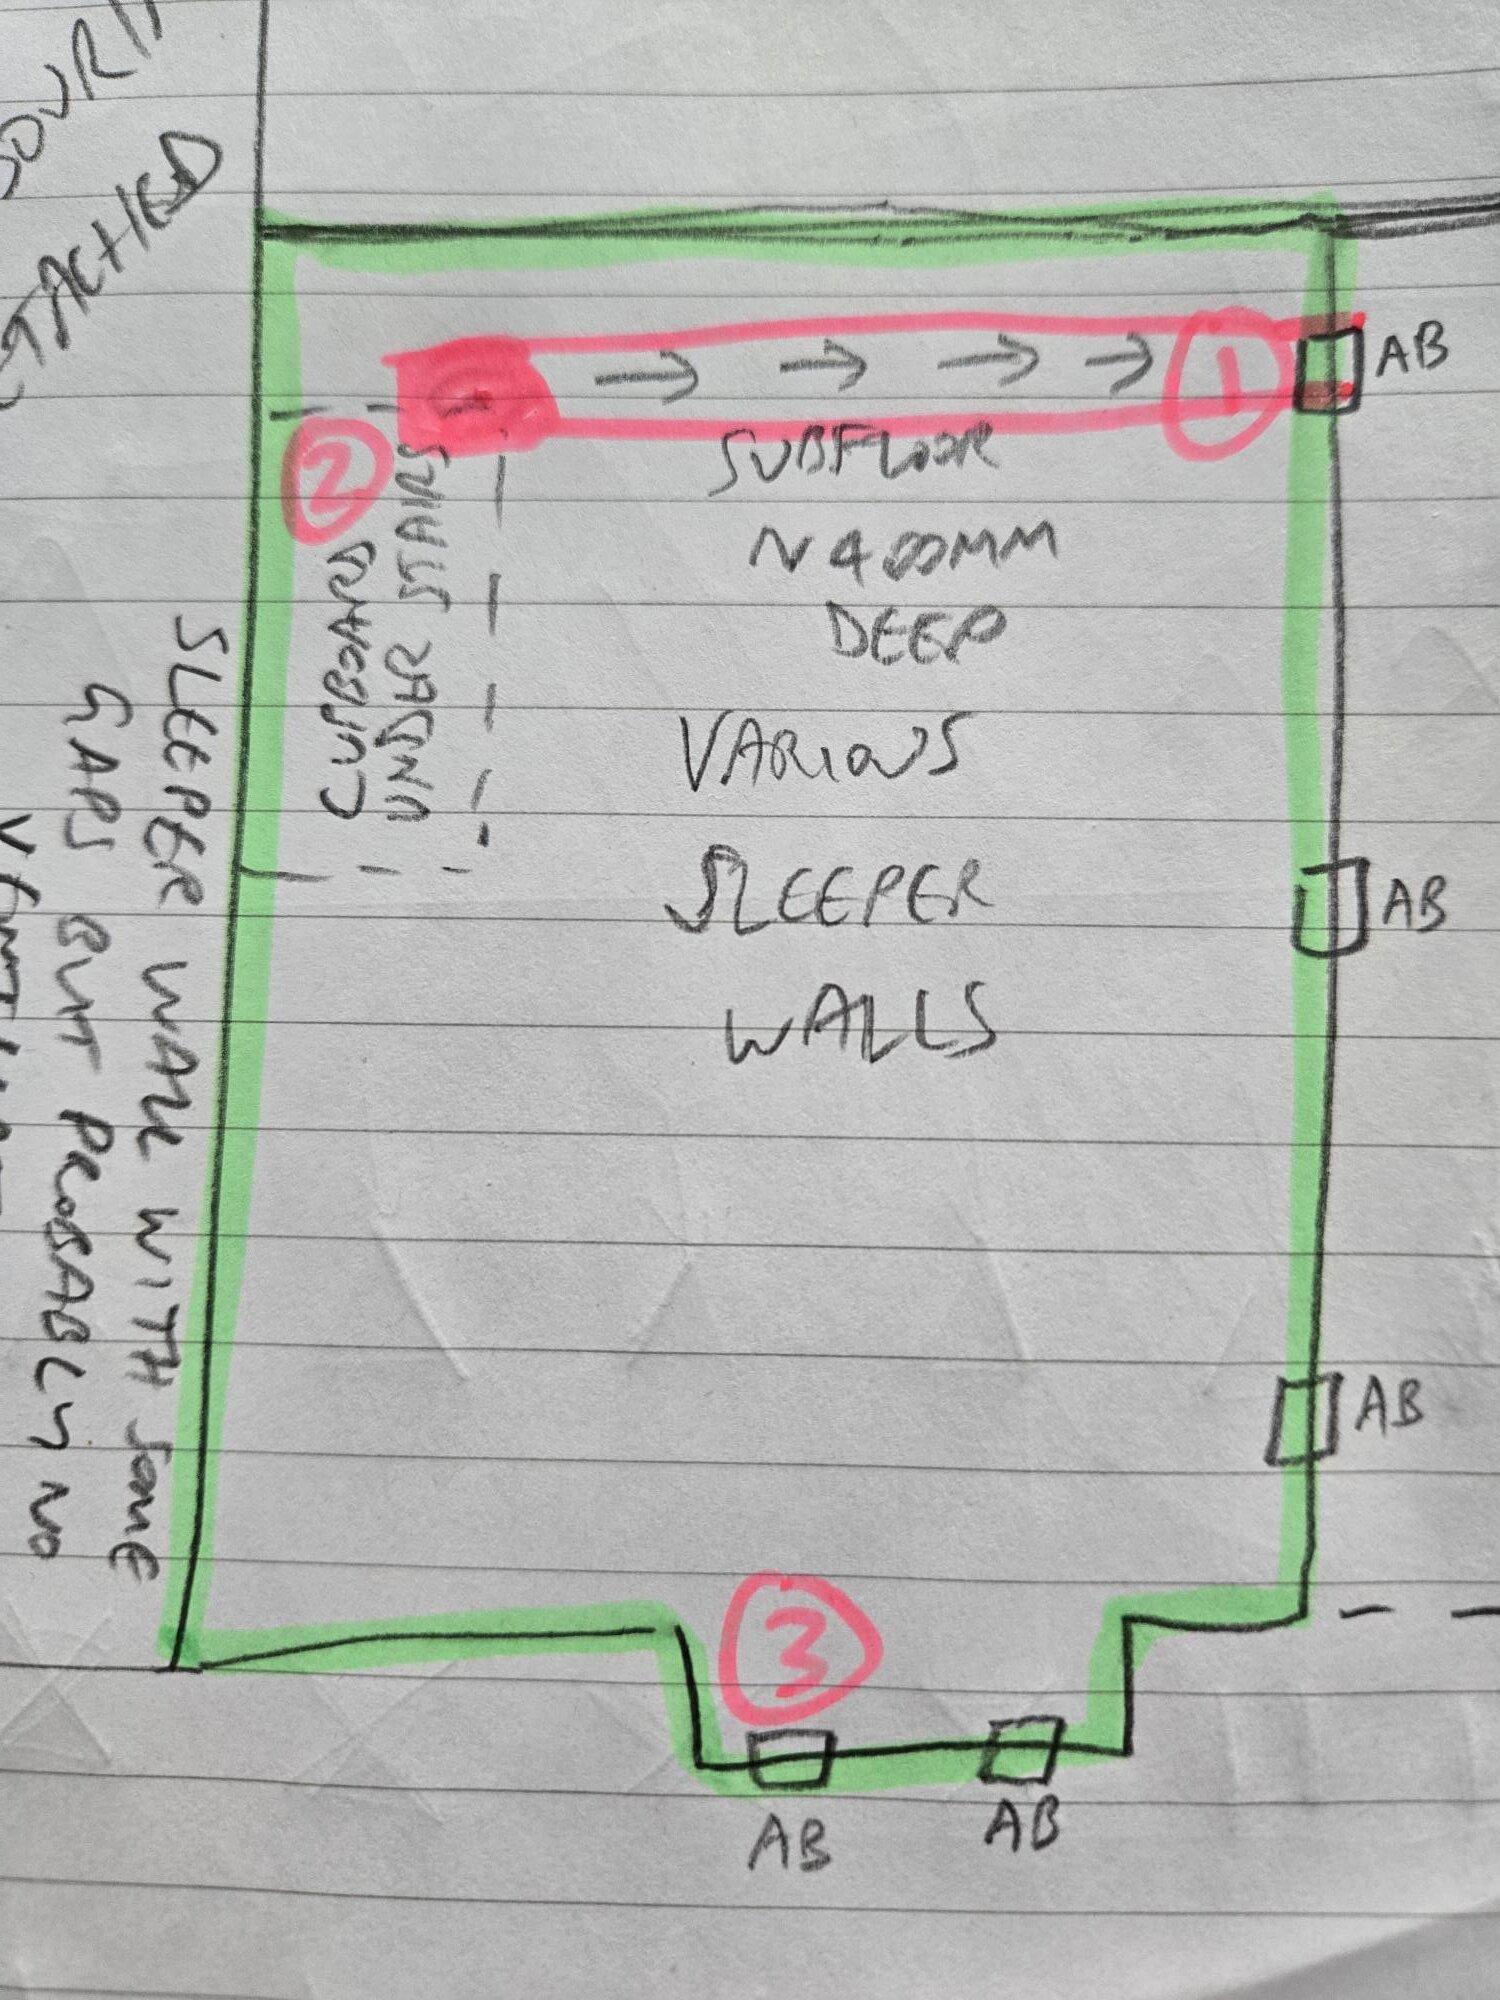 TTACHED
AB
1
2
SUBFLOOR
~ 400MM
DEEP
CUPBOARD
UNDER STAIRS
VARIOUS
SLEEPER
WALLS
AB
SLEEPER WALL WITH SOME
GAPS BUT PROBABLY NO
AB
3
AB
AB